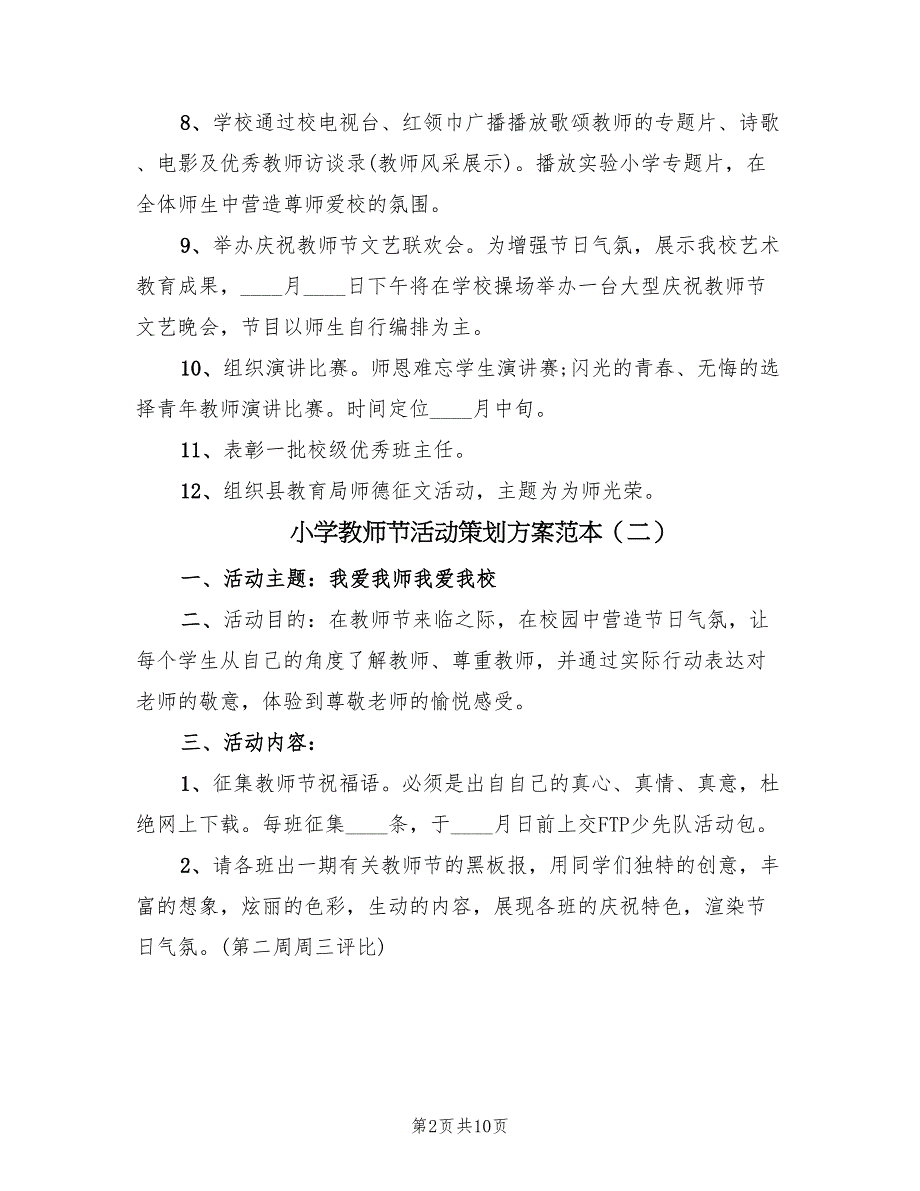 8、学校通过校电视台、红领巾广播播放歌颂教师的专题片、诗歌
、电影及优秀教师访谈录(教师风采展示)。播放实验小学专题片，在
全体师生中营造尊师爱校的氛围。
9、举办庆祝教师节文艺联欢会。为增强节日气氛，展示我校艺术
教育成果，____月____日下午将在学校操场举办一台大型庆祝教师节
文艺晚会，节目以师生自行编排为主。
10、组织演讲比赛。师恩难忘学生演讲赛;闪光的青春、无悔的选
择青年教师演讲比赛。时间定位____月中旬。
11、表彰一批校级优秀班主任。
12、组织县教育局师德征文活动，主题为为师光荣。
小学教师节活动策划方案范本（二）
一、活动主题：我爱我师我爱我校
二、活动目的：在教师节来临之际，在校园中营造节日气氛，让
每个学生从自己的角度了解教师、尊重教师，并通过实际行动表达对
老师的敬意，体验到尊敬老师的愉悦感受。
三、活动内容：
1、征集教师节祝福语。必须是出自自己的真心、真情、真意，杜
绝网上下载。每班征集____条，于____月日前上交FTP少先队活动包。
2、请各班出一期有关教师节的黑板报，用同学们独特的创意，丰
富的想象，炫丽的色彩，生动的内容，展现各班的庆祝特色，渲染节
日气氛。(第二周周三评比)
第2页共10页